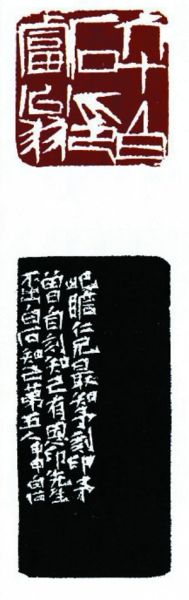 六十白
石印
富翁
屺瞻仁兄最知予刻印
曾自刻知己有恩印先生
不出白石知己第五人甲申白石